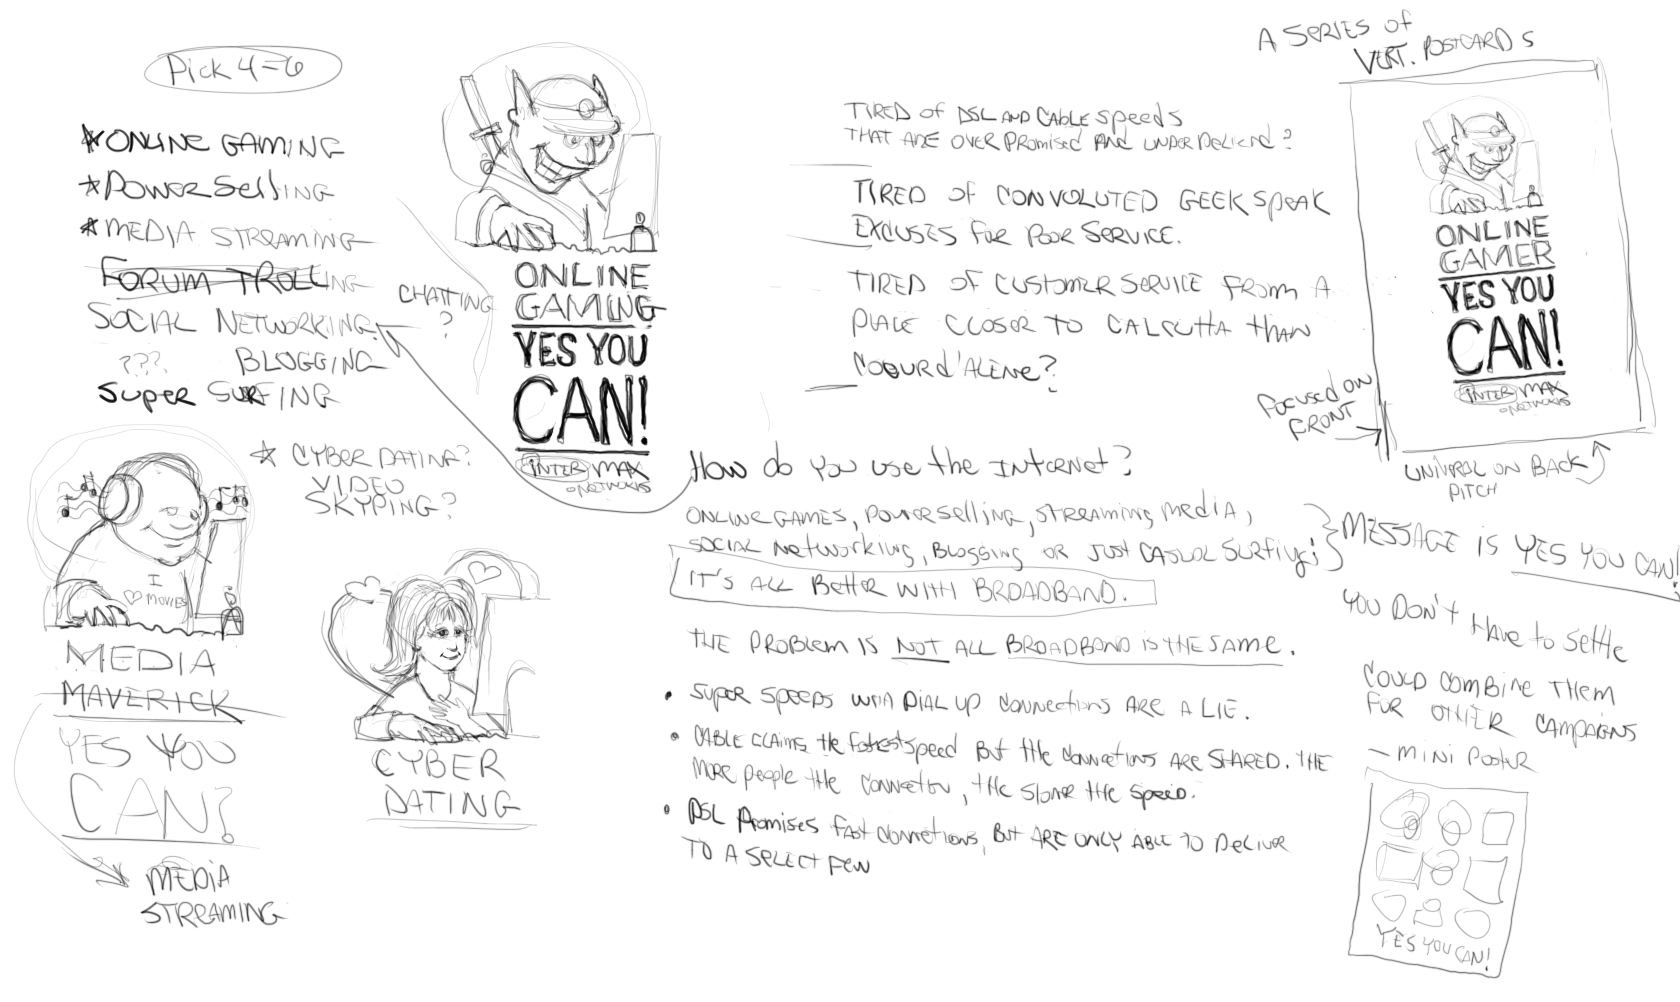 Pick 4-6
ONLINE GAMING
POWER SELLING
MEDIA STREAMING
FORUM TROLLING
SOCIAL NETWORKING
??? BLOGGING
SUPER SURFING
CHATTING
?
CYBER DATING?
VIDEO
SKYPING?
ONLINE
GAMING
YES YOU
CAN!
INTERMAX
NETWORKS
I
MOVIES
MEDIA
MAVERICK
YES YOU
CAN?
MEDIA
STREAMING
CYBER
DATING
TIRED of DSL AND CABLE SPEEDS
THAT ARE OVER PROMISED AND UNDER DELIVERD?
TIRED of CONVOLUTED GEEK SPEAK
EXCUSES FOR POOR SERVICE.
TIRED OF CUSTOMER SERVICE FROM A
PLACE CLOSER TO CALCUTTA THAN
COEUR d'ALENE?
How do You use the INTERNET?
ONLINE GAMES, POWER SELLING, STREAMING MEDIA,
SOCIAL NETWORKING, BLOGGING OR JUST CASUAL SURFING;
IT'S ALL BETTER WITH BROADBAND.
THE PROBLEM IS NOT ALL BROADBAND IS THE SAME.
• SUPER SPEEDS WITH DIAL UP CONNECTIONS ARE A LIE.
• CABLE CLAIMS THE FASTEST SPEED BUT THE CONNECTIONS ARE SHARED. THE
MORE PEOPLE THE CONNECTION, THE SLOWER THE SPEED.
• DSL PROMISES FAST CONNECTIONS, BUT ARE ONLY ABLE TO DELIVER
TO A SELECT FEW
A SERIES OF
VERT. POSTCARDS
ONLINE
GAMER
YES YOU
CAN!
INTERMAX
NETWORKS
FOCUSED ON
FRONT
UNIVERSAL ON BACK
PITCH
MESSAGE IS YES YOU CAN!
YOU DON'T HAVE TO SETTLE
COULD COMBINE THEM
FOR OTHER CAMPAIGNS
- MINI POSTER
YES YOU CAN!